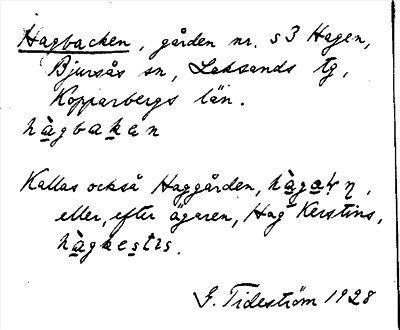 Hagbacken, gården nr. s 3 Hagen,
Bjursås sn, Leksands tg,
Kopparbergs län.
hàgbakan
Kallas också Haggården, hàgaṛ η,
eller, efter ägaren, Hag Kerstins,
hàgkestis.
G. Tideström 1928